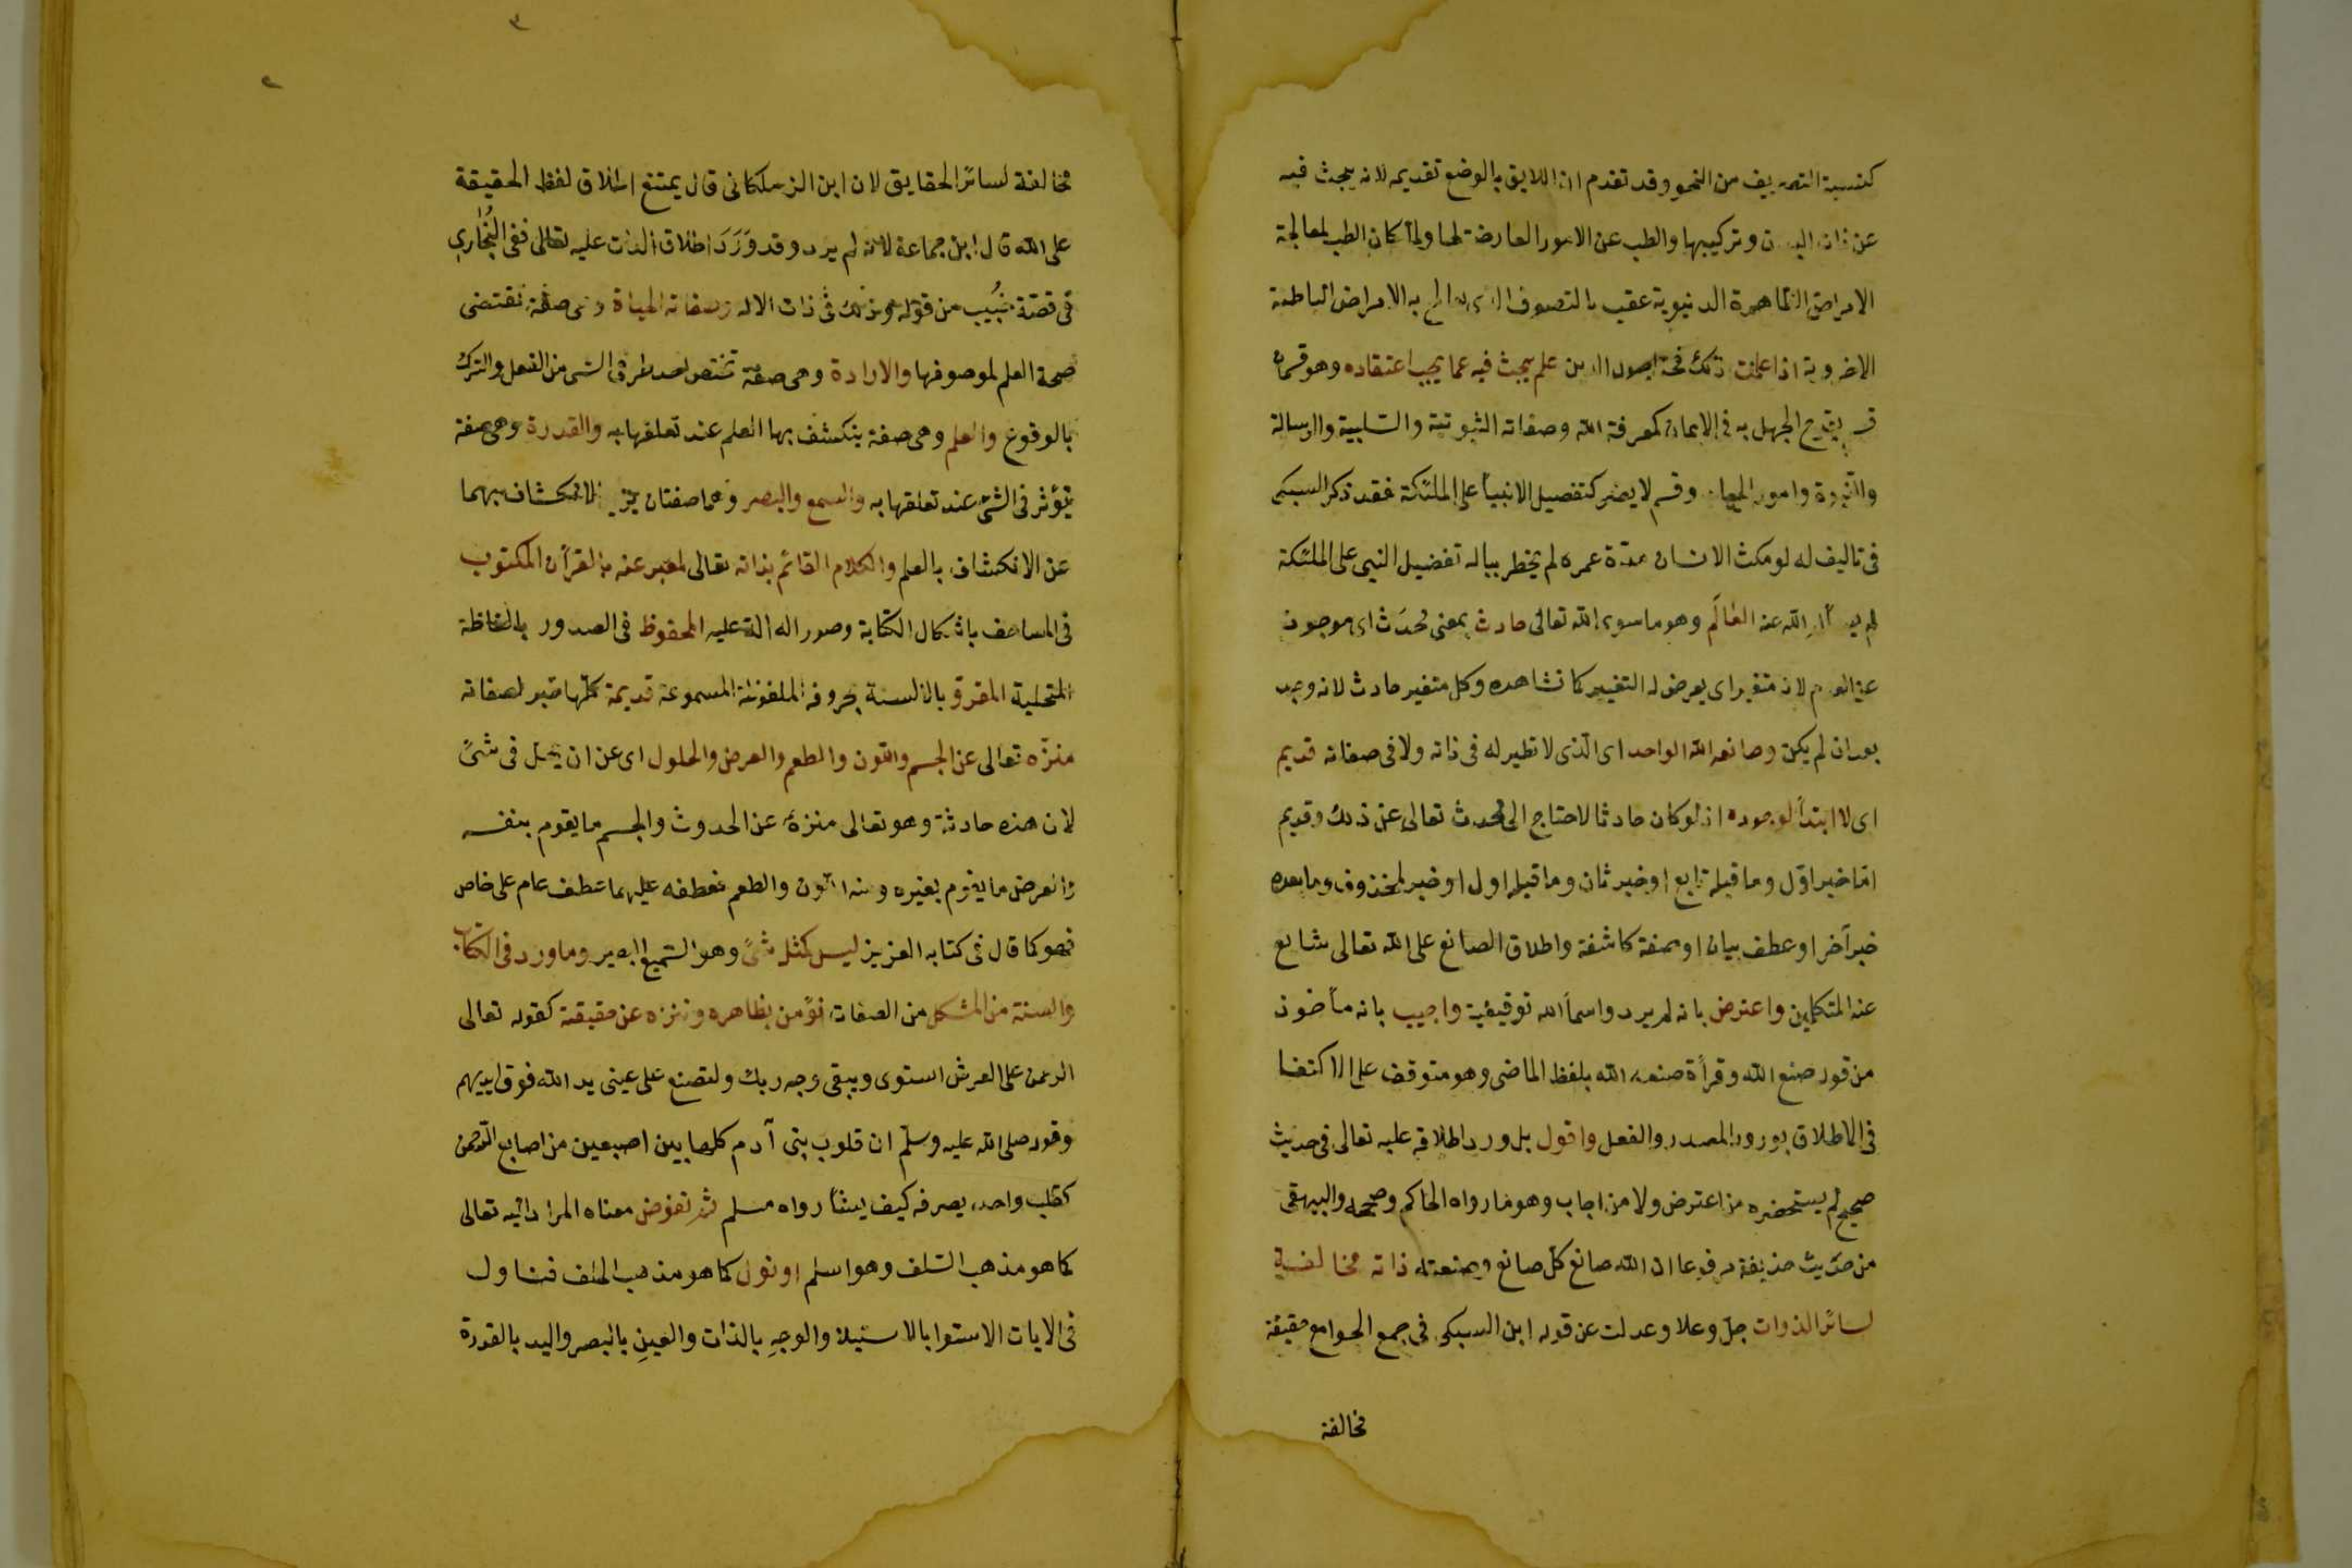 كنسبة التصريف من النحو وقد تقدم ان اللايق بالوضع تقديمه لانه يبحث فيه
عن ذات البدن وتركيبها والطب عن الامور العارضة لها ولما كان الطب لمعالجة
الامراض الظاهرة الدنيوية عقب بالتصوف الذى يعالج به الامراض الباطنة
الاخروية اذا علمت ذلك فحد اصول الدين علم يبحث فيه عما يجب اعتقاده وهو قسمان
قسم يقدح الجهل به فى الايمان كمعرفة الله وصفاته الثبوتية والسلبية والرسالة
والنبوة وامور المعاد وقسم لا يضر كتفضيل الانبيأ على الملئكة فقد ذكر السبكى
فى تاليف له لو مكث الانسان مدّة عمره لم يخطر بباله تفضيل النبى على الملئكة
لم يسأله الله عنه العالَم وهو ما سوى الله تعالى حادث بمعنى مُحدَث اى موجود
عن العدم لانه متغير اى يعرض له التغيير كما نشاهده وكل متغير حادث لانه وجد
بعد ان لم يكن وصانعه الله الواحد اى الّذى لا نظير له فى ذاته ولا فى صفاته قديم
اى لا ابتدأ لوجوده اذ لو كان حادثا لاحتاج الى محدث تعالى عن ذلك وقديم
امّا خبر اوّل وما قبله تابع او خبر ثان وما قبله اول او خبر لمحذوف وما بعده
خبر آخر او عطف بيان او صفة كاشفة واطلاق الصانع على الله تعالى شايع
عند المتكلمين واعترض بانه لم يرد واسمأ الله توقيفية واجيب بانه مأخوذ
من قوله صنع الله وقرأة صنعه الله بلفظ الماضى وهو متوقف على الاكتفا
فى الاطلاق بورود المصدر والفعل واقول بل ورد اطلاقه عليه تعالى فى حديث
صحيح لم يستحضره من اعترض ولا من اجاب وهو ما رواه الحاكم وصححه والبيهقى
من حديث حذيفة مرفوعا ان الله صانع كلّ صانع وصنعته ذاته مخالفة
لسائر الذوات جلّ وعلا وعدلت عن قوله ابن السبكى فى جمع الجوامع حقيقة
مخالفة
٣
٢
مخالفة لسائر الحقايق لان ابن الزملكانى قال يمتنع اطلاق لفظ الحقيقة
على الله قال ابن جماعة لانه لم يرد وقد وَرَدَ اطلاق الذات عليه تعالى ففى البُخارى
فى قصّة خبُيب من قوله وذلك فى ذات الاله وصفاته الحياة وهى صفة تقتضى
صحة العلم لموصوفها والارادة وهى صفة تخصص احد طرفى الشى من الفعل والترك
بالوقوع والعلم وهى صفة ينكشف بها العلم عند تعلقها به والقدرة وهى صفة
تؤثر فى الشئ عند تعلقها به والسمع والبصر وهما صفتان يزيد الانكشاف بهما
عن الانكشاف بالعلم والكلام القائم بذاته تعالى لمعبر عنه بالقرأن المكتوب
فى المصاحف باشكال الكتابة وصور الدالة عليه المحفوظ فى الصدور بالفاظه
المتخيلة المقرؤ بالالسنة بحروفه الملفوظة المسموعة قديمة كلّها خبر لصفاته
منزّه تعالى عن الجسم واللون والطعم والعرض والحلول اى عن ان يحل فى شئ
لان هذه حادثة وهو تعالى منزه عن الحدوث والجسم ما يقوم بنفسه
والعرض ما يقوم بغيره ومنه اللون والطعم فعطفه عليهما عطف عام على خاص
فهو كما قال فى كتابه العزيز ليس كمثله شئ وهو السّميع البصير وما ورد فى الكتاب
والسنة من المشكل من الصفات نؤمن بظاهره وننزه عن حقيقته كقوله تعالى
الرحمن على العرش استوى ويبقى وجه ربك ولتصنع على عينى يد الله فوق ايديهم
وقوله صلى الله عليه وسلّم ان قلوب بنى آدم كلها بين اصبعين من اصابع الرّحمن
كقلب واحد يصرفه كيف يشأ رواه مسلم ثم نفوض معناه المراد اليه تعالى
كما هو مذهب السّلف وهو اسلم او نول كما هو مذهب الخلف فنناول
فى الايات الاستوا بالاستيلا والوجهِ بالذات والعينِ بالبصر واليد بالقدرة